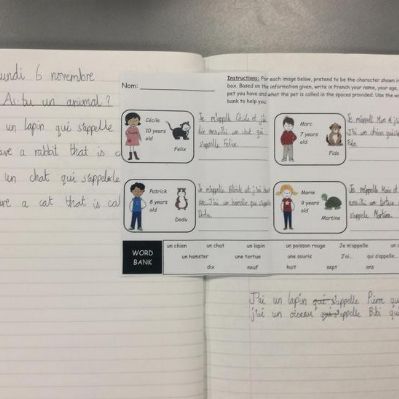 undi 6 novembre
As-tu un animal?
un lapin qui s'appelle
ve a rabbit that is c
un chat qui s'appelle
ve a cat that is cal
Nom:
Instructions: For each image below, pretend to be the character shown in
box. Based on the information given, write in French your name, your age,
pet you have and what the pet is called in the spaces provided. Use the wo
bank to help you.
Cécile
10 years
old
Felix
Je m'appelle Cécile et j'ai
dix ans. J'ai un chat qui
s'appelle Felix.
Marc
7 years
old
Fido
Je m'appelle Marc et j'
J'ai un chien qui
Fido.
Patrick
8 years
old
Dodu
Je m'appelle Patrick et j'ai huit
ans. J'ai un hamster qui s'appelle
Dodu.
Marie
9 years
old
Martine
Je m'appelle Marie et
ans. J'ai une tortue
s'appelle Martine.
WORD
BANK
un chien un chat un lapin un poisson rouge Je m'appelle un
un hamster une tortue une souris J'ai.. qui s'appelle..
dix neuf huit sept ans
J'ai un lapin qui s'appelle Pierre qu
j'ai un oiseau qui s'appelle Bibi qui